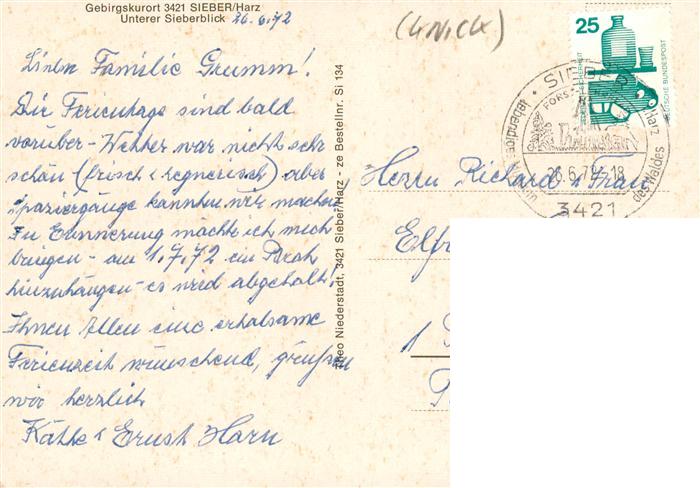 Gebirgskurort 3421 SIEBER/Harz
Unterer Sieberblick 26.6.72
Familie Grumm!
Die Ferientage sind bald
vorüber - Wetter war nicht sehr
schön (frisch & regnerisch) aber
Spaziergänge konnten wir machen
Zu Erinnerung möchte ich mich
bringen - am 1.7.72 ein
hinzuhängen - es wird abgeholt!
Ihnen Allen eine erholsame
Ferienzeit wünschend, grüßen
wir herzlich
Käthe & Ernst Horn
Theo Niederstadt, 3421 Sieber/Harz - ze Bestellnr. Si 134
25
DEUTSCHE BUNDESPOST
SIEBER
26.6.72-18
3421
des Waldes
Herrn Richard & Frau
Elf
1